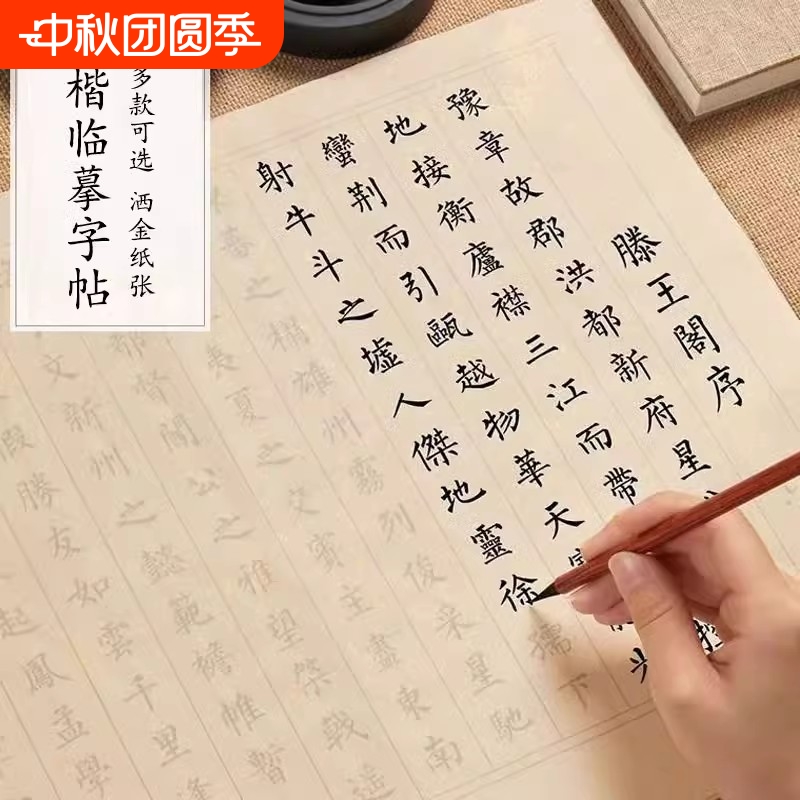 中秋团圆季
楷临摹字帖
多款可选 洒金纸张
滕王閣序
豫章故郡洪都新府星
地接衡廬襟三江而帶
蠻荆而引甌越物華天
射牛斗之墟人傑地靈徐孺下
蕃之榻雄州霧列俊采星馳
夷夏之交賓主盡東南
都督閻公之雅望棨戟遥
文新州之懿範襜帷暫
假勝友如雲千里逢
起鳳孟學